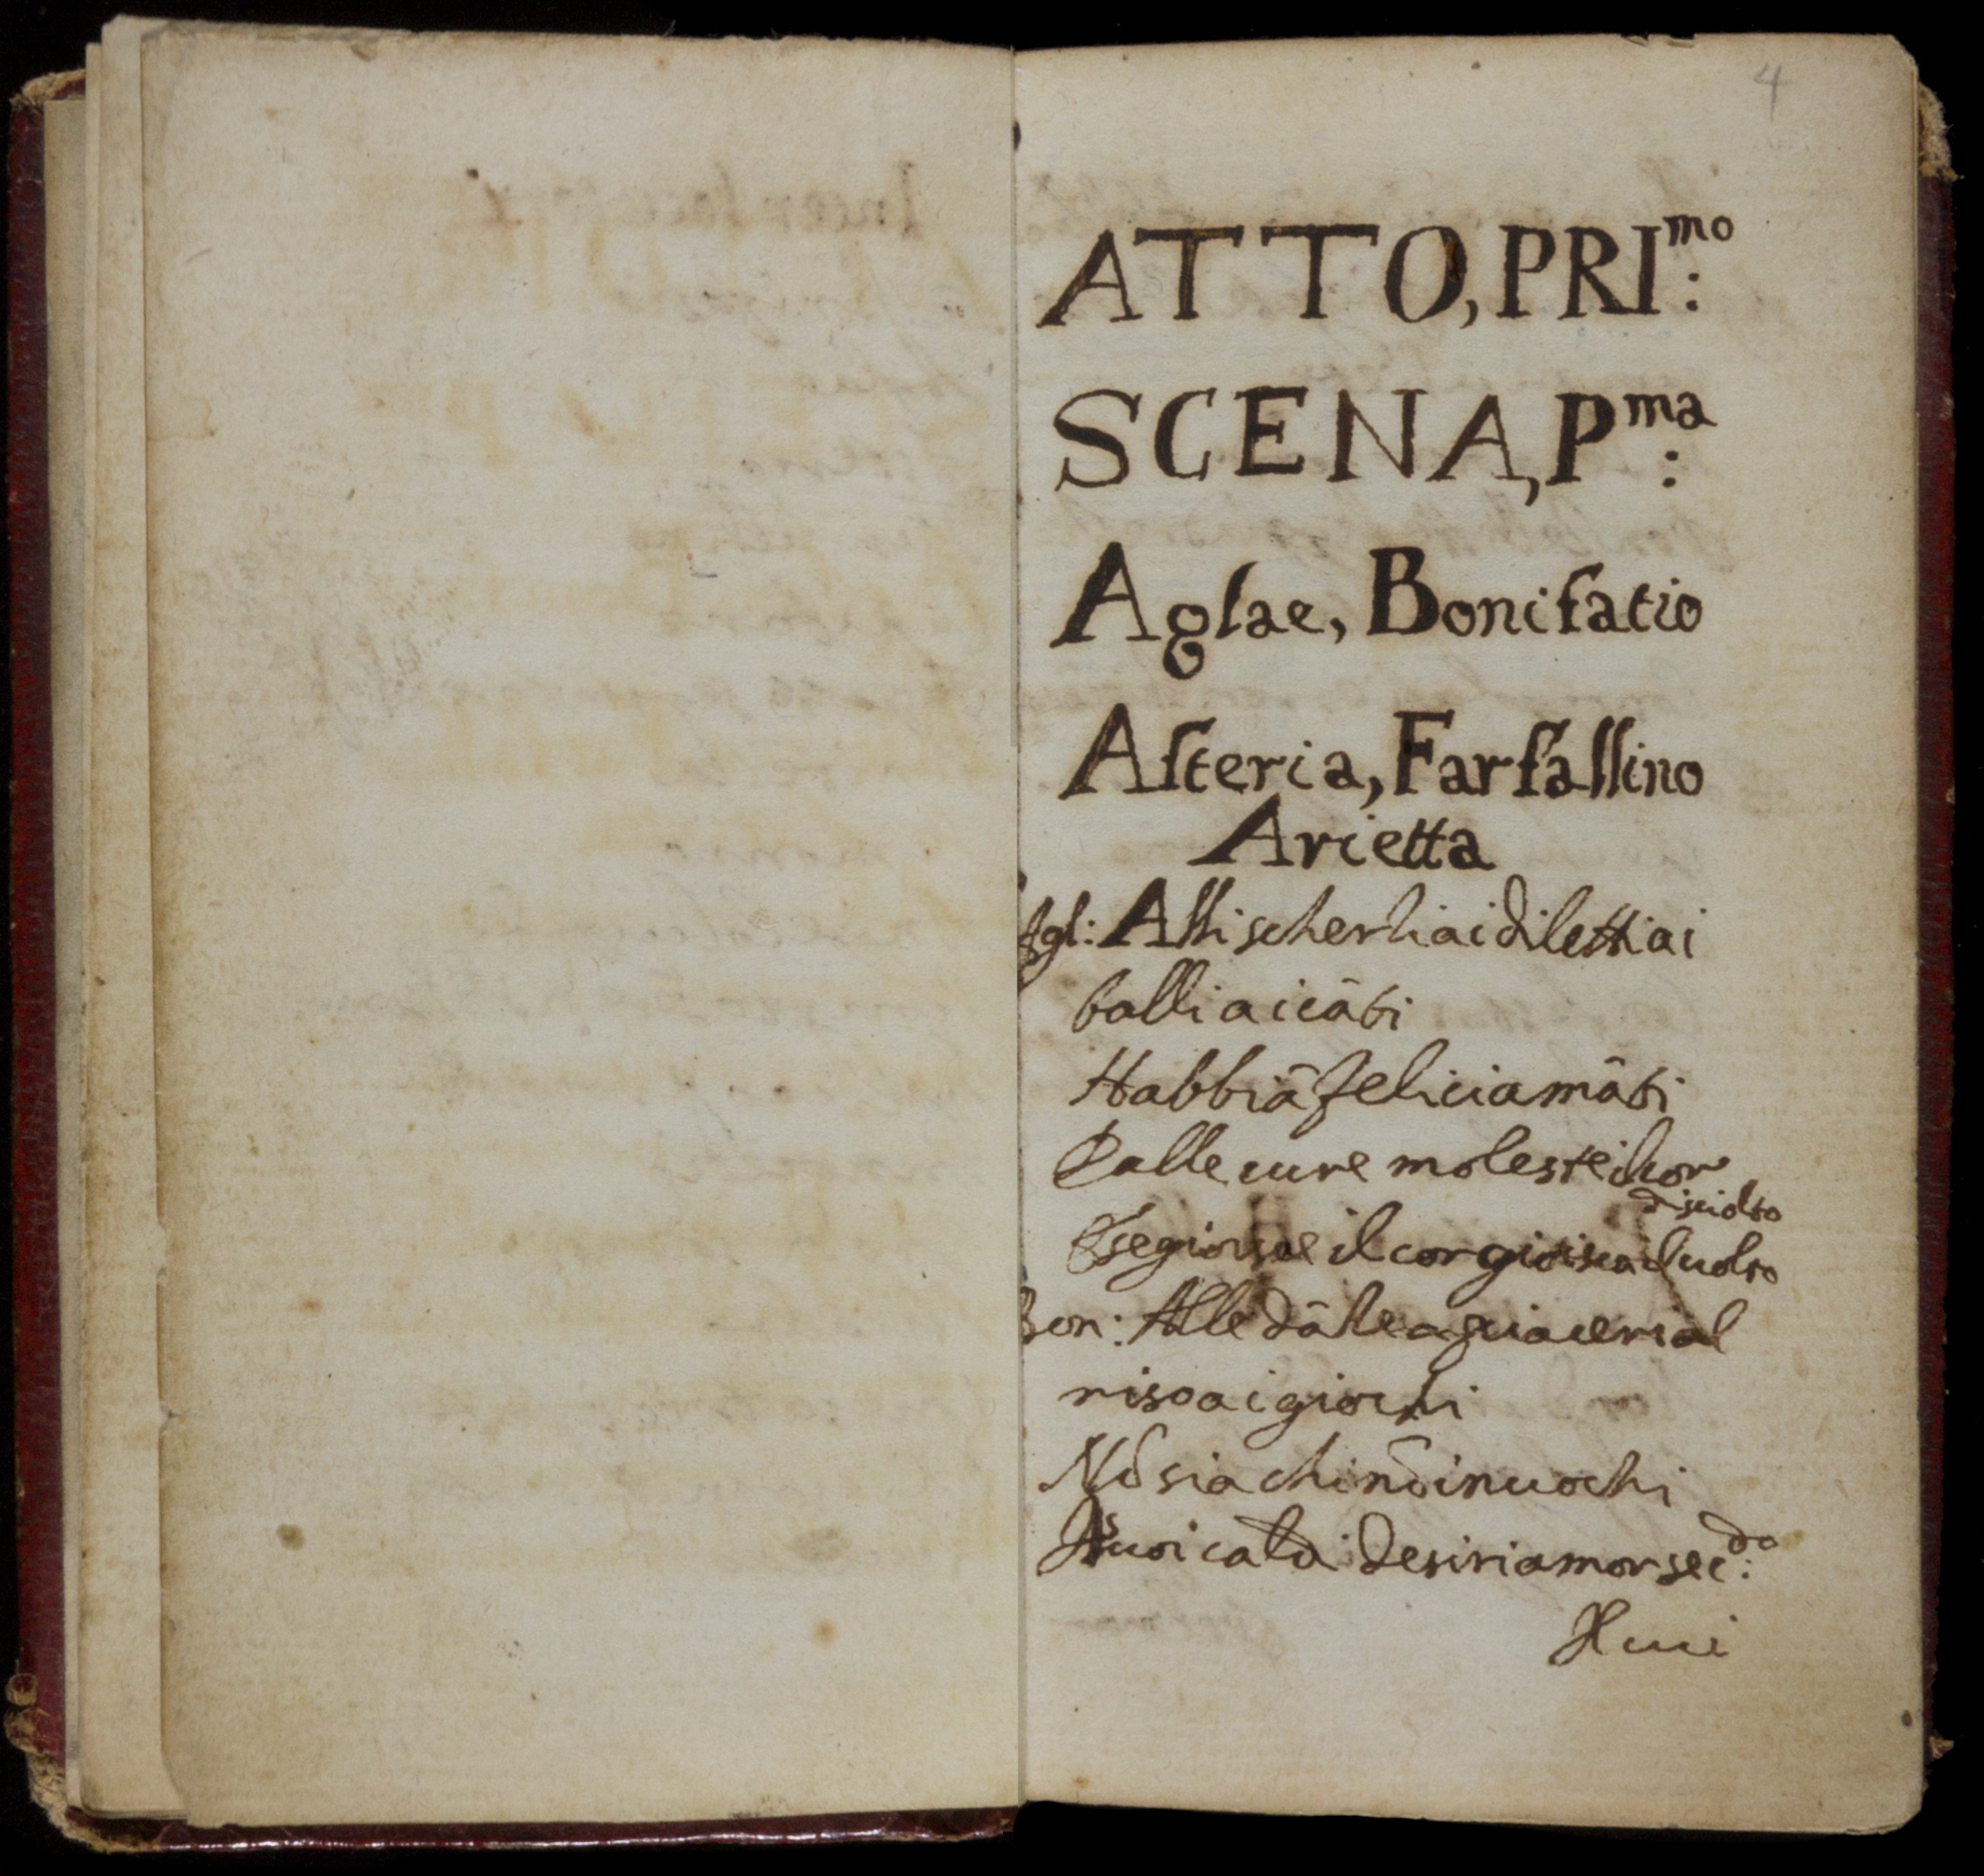 4
ATTO, PRI:mo
SCENA, P:ma
Aglae, Bonifatio
Asteria, Farfallino
Arietta
Agl: Alli scherzi ai diletti ai
balli ai cāti
Habbiā felici amāti
Dalle cure moleste il cor
disciolto
E se gioisce il cor gioisca il uolto
Bon: Alle dāze a piaceri al
riso ai giochi
Nō sia chi nō inuochi
desiri amor sec:do